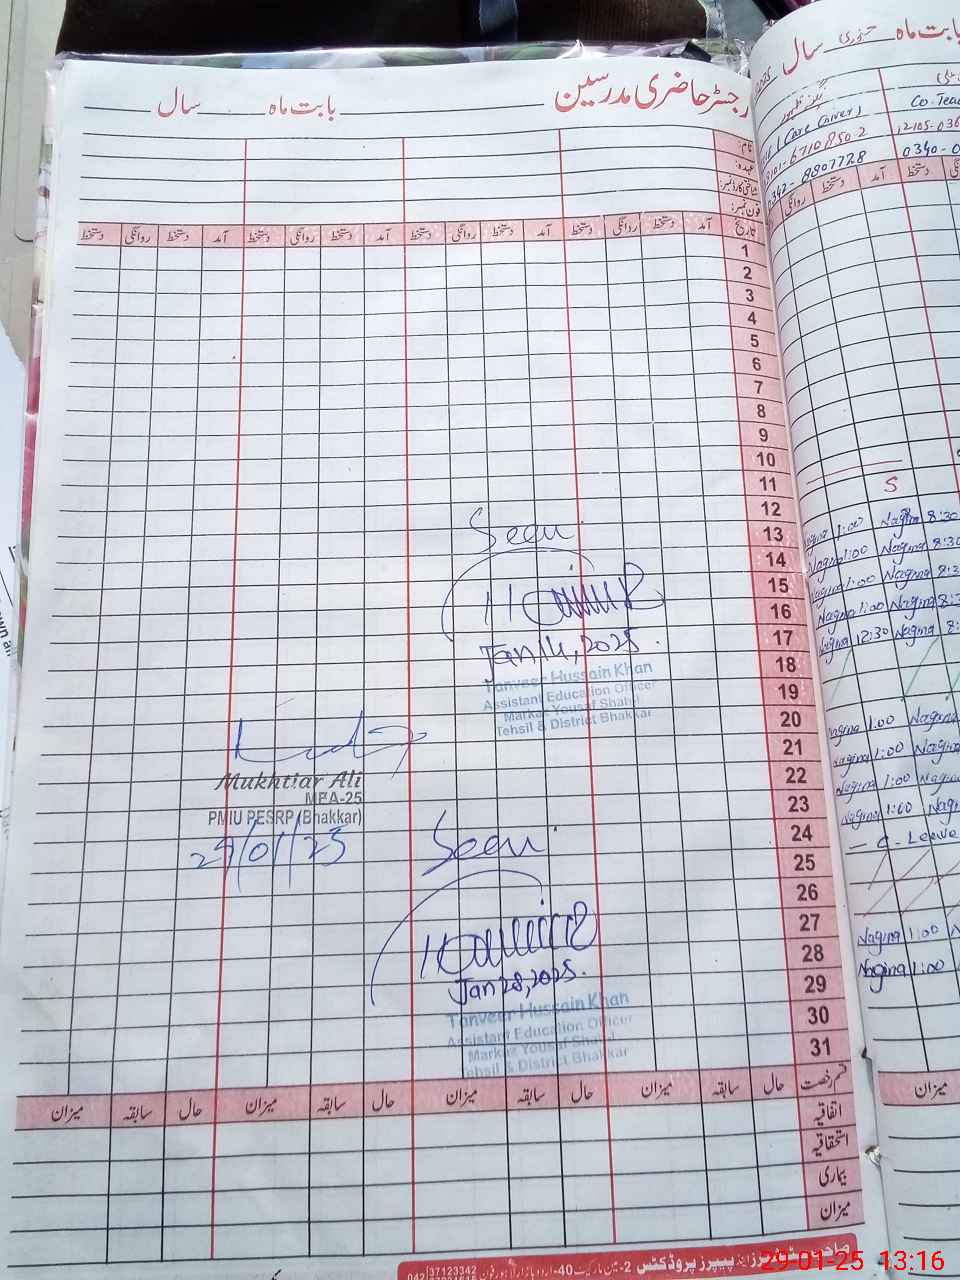 رجسٹر حاضری مدرسین بابت ماہ سال
نام:
عہدہ:
شناختی کارڈ نمبر:
فون نمبر:
تاریخ آمد دستخط روانگی دستخط آمد دستخط روانگی دستخط آمد دستخط روانگی دستخط آمد دستخط روانگی دستخط
1
2
3
4
5
6
7
8
9
10
11
12
13
14
15
16
17
18
19
20
21
22
23
24
25
26
27
28
29
30
31
Seen
Jan 14, 2025.
Tanveer Hussain Khan
Assistant Education Officer
Markaz Yousaf Shah
Tehsil & District Bhakkar
Mukhtiar Ali
MEA-25
PMIU PESRP (Bhakkar)
29/01/25
Seen
Jan 28, 2025.
Tanveer Hussain Khan
Assistant Education Officer
Markaz Yousaf Shah
Tehsil & District Bhakkar
قسم رخصت حال سابقہ میزان حال سابقہ میزان حال سابقہ میزان حال سابقہ میزان
اتفاقیہ
استحقاقیہ
بیماری
میزان
پیپرز پروڈکٹس 2-مین مارکیٹ 40-اردو بازار لاہور فون
042 37123342
بابت ماہ جنوری سال 2025
(Care Caiver) Co. Teac
6710850-2 12105-036
0342-8807728 0340-0
روانگی دستخط آمد دستخط
S
Nagina 1:00 Nagina 8:30
Nagina 1:00 Nagina 8:30
Nagina 1:00 Nagina 8:3
Nagina 1:00 Nagina 8:3
Nagina 12:30 Nagina 8:
Nagina 1:00 Nagina
Nagina 1:00 Nagina
Nagina 1:00 Nagina
Nagina 1:00 Nagi
— C. Leave
Nagina 1:00
Nagina 1:00
میزان
29-01-25 13:16